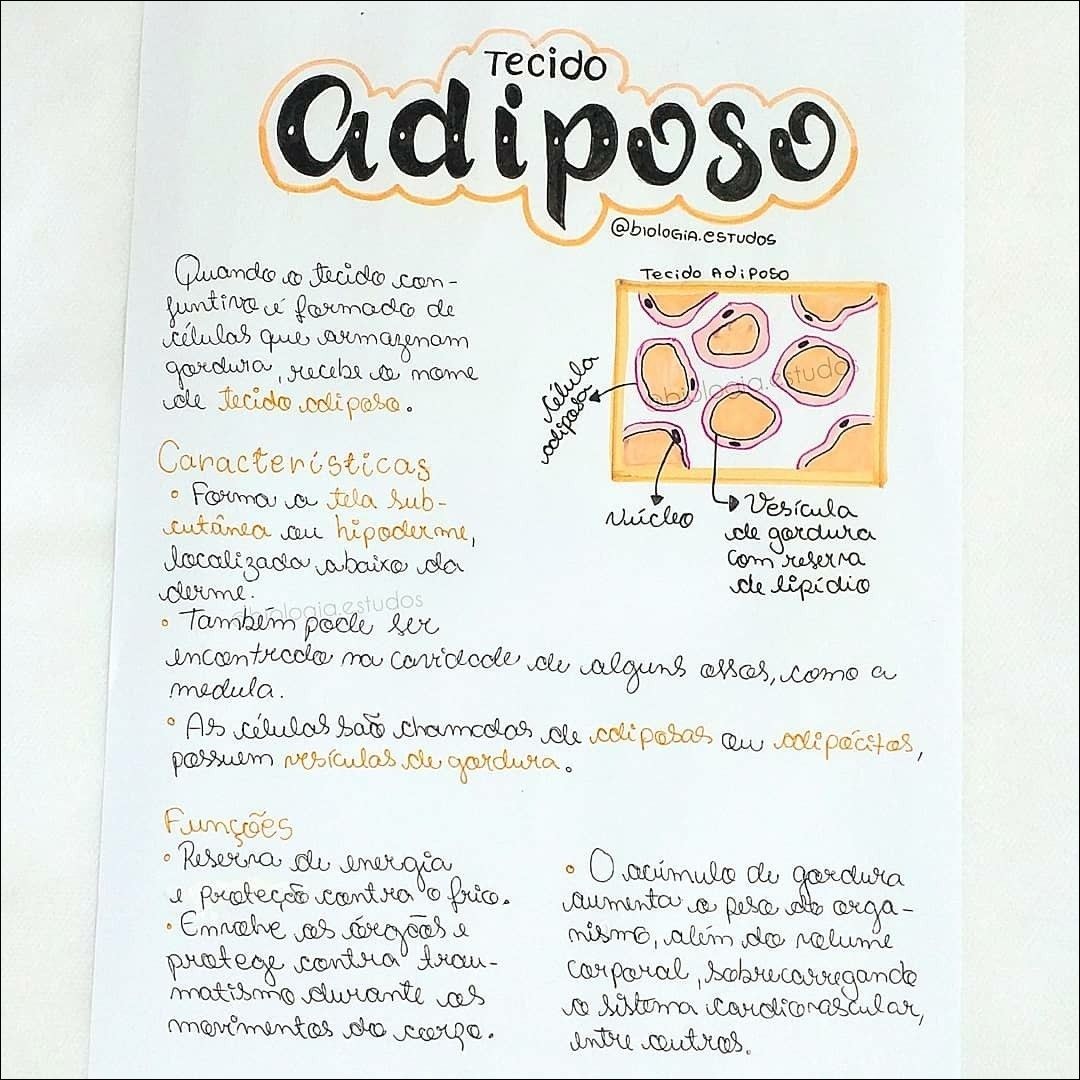 Tecido
adiposo
@biologia.estudos
Quando o tecido con-
juntivo é formado de
células que armazenam
gordura, recebe o nome
de tecido adiposo.
Tecido Adiposo
@biologia.estudos
Célula
adiposa
Núcleo
Vesícula
de gordura
com reserva
de lipídio
Características
• Forma a tela sub-
cutânea ou hipoderme,
localizada abaixo da
derme.
@biologia.estudos
• Também pode ser
encontrado na cavidade de alguns ossos, como a
medula.
• As células são chamadas de adiposas ou adipócitos,
possuem vesículas de gordura.
Funções
• Reserva de energia
e proteção contra o frio.
• Envolve os órgãos e
protege contra trau-
matismo durante os
movimentos do corpo.
• O acúmulo de gordura
aumenta o peso do orga-
nismo, além do volume
corporal, sobrecarregando
o sistema cardiovascular,
entre outros.